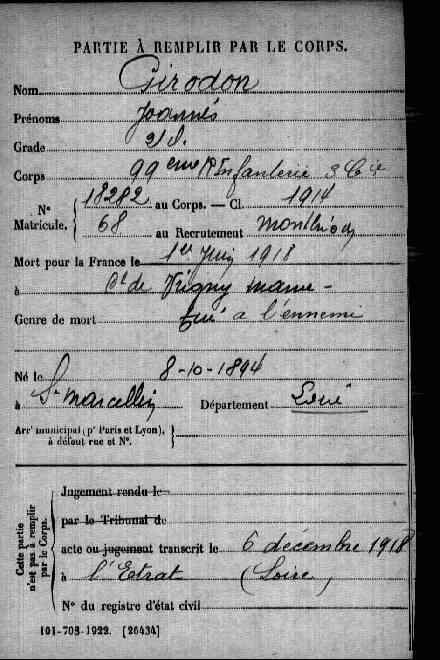 PARTIE À REMPLIR PAR LE CORPS.
Nom Girodon
Prénoms Joannès
Grade
Corps 99eme R Infanterie 3 Cie
N° Matricule. { 18282 au Corps. — Cl. 1914
68 au Recrutement Montbrison
Mort pour la France le 1er Juin 1918
à Ct de Vrigny marne -
Genre de mort tué a l'ennemi
Né le 8-10-1894
à St Marcellin Département Loire
Arrt municipal (pr Paris et Lyon), à défaut rue et N°. }
Cette partie n'est pas à remplir par le Corps.
Jugement rendu le
par le Tribunal de
acte ou jugement transcrit le 6 décembre 1918
à l'Etrat (Loire)
N° du registre d'état civil
101-708-1922. [26434]